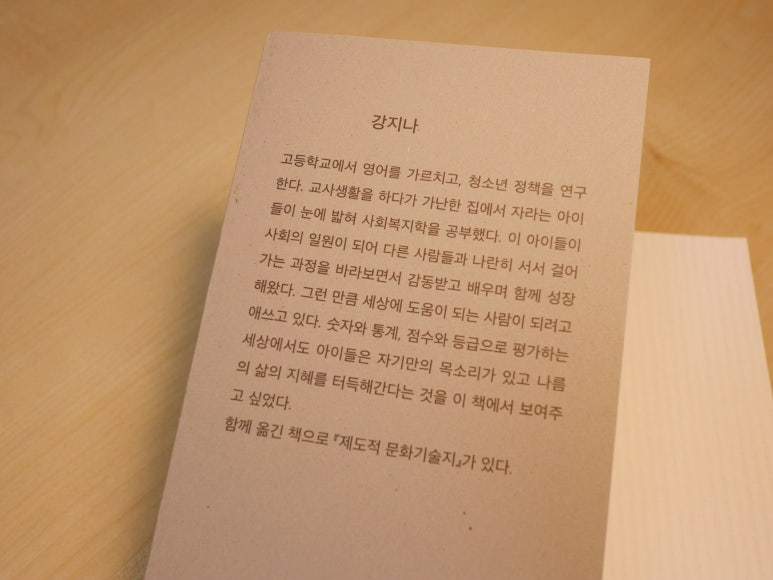 강지나
고등학교에서 영어를 가르치고, 청소년 정책을 연구
한다. 교사생활을 하다가 가난한 집에서 자라는 아이
들이 눈에 밟혀 사회복지학을 공부했다. 이 아이들이
사회의 일원이 되어 다른 사람들과 나란히 서서 걸어
가는 과정을 바라보면서 감동받고 배우며 함께 성장
해왔다. 그런 만큼 세상에 도움이 되는 사람이 되려고
애쓰고 있다. 숫자와 통계, 점수와 등급으로 평가하는
세상에서도 아이들은 자기만의 목소리가 있고 나름
의 삶의 지혜를 터득해간다는 것을 이 책에서 보여주
고 싶었다.
함께 옮긴 책으로 『제도적 문화기술지』가 있다.